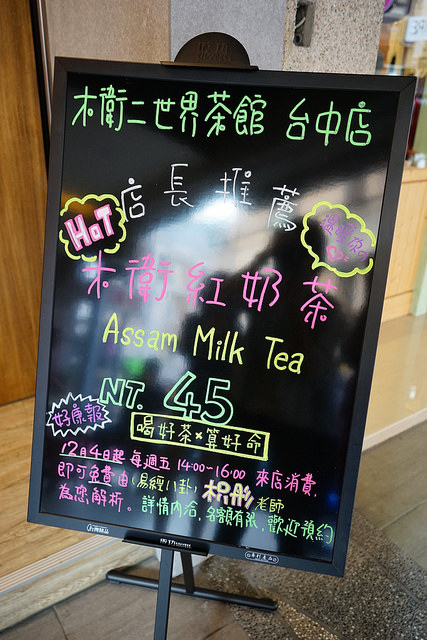 木衛二世界茶館 台中店
店長推薦
HOT
木衛紅奶茶
Assam Milk Tea
NT. 45
好康報
喝好茶×算好命
12月4日起 每週五 14:00~16:00 來店消費,
即可免費由(易經八卦) 老師
為您解析。詳情內洽,名額有限,歡迎預約